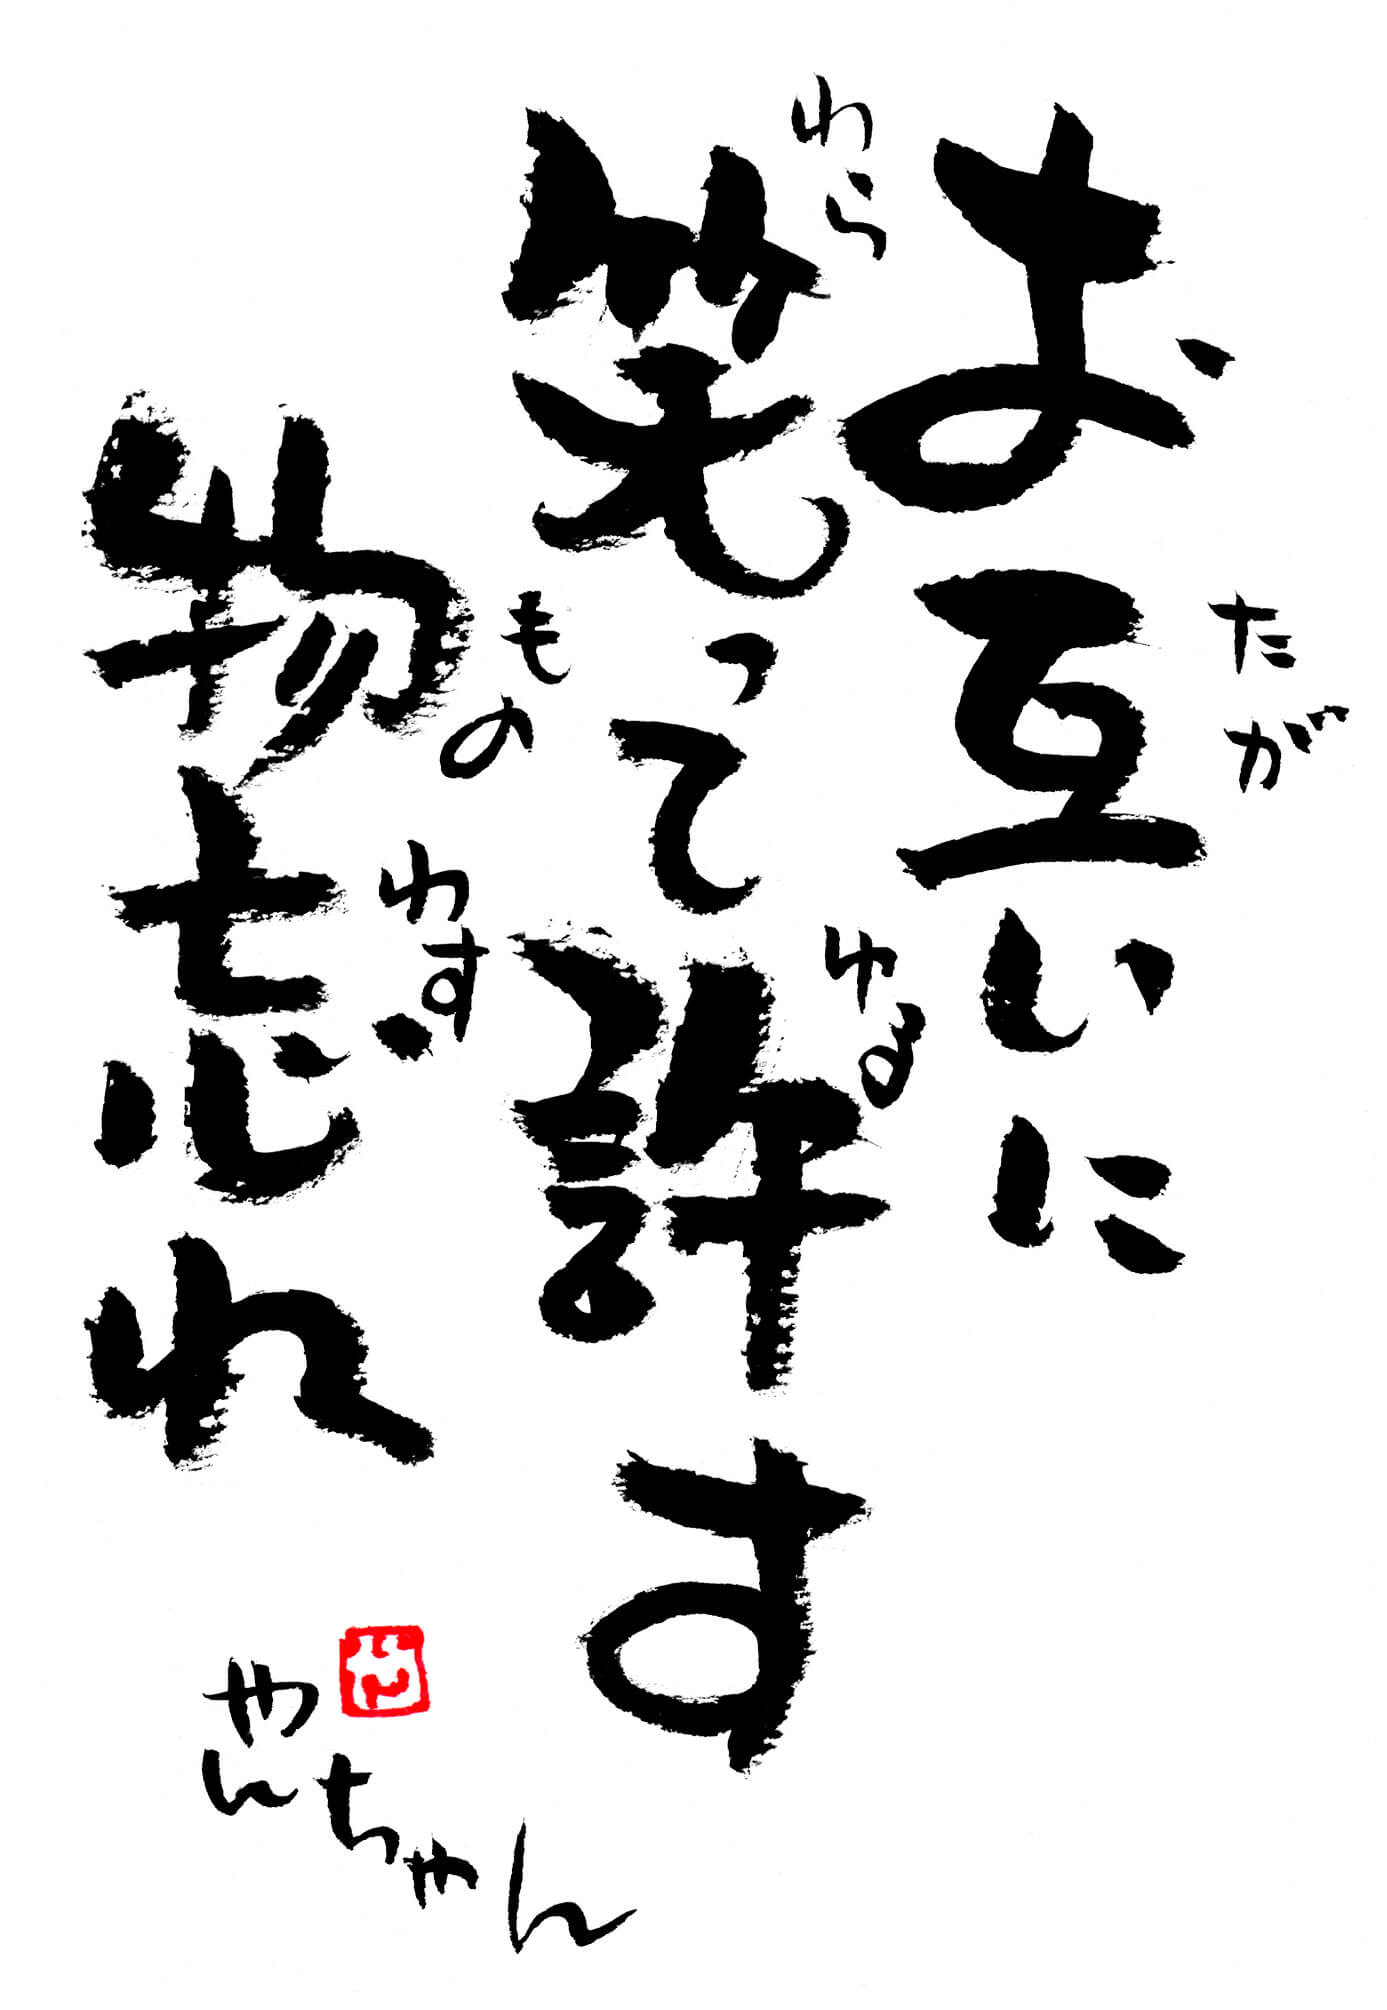 お互いに
たが
笑って許す
わら
ゆる
物忘れ
もの
わす
やんちゃん